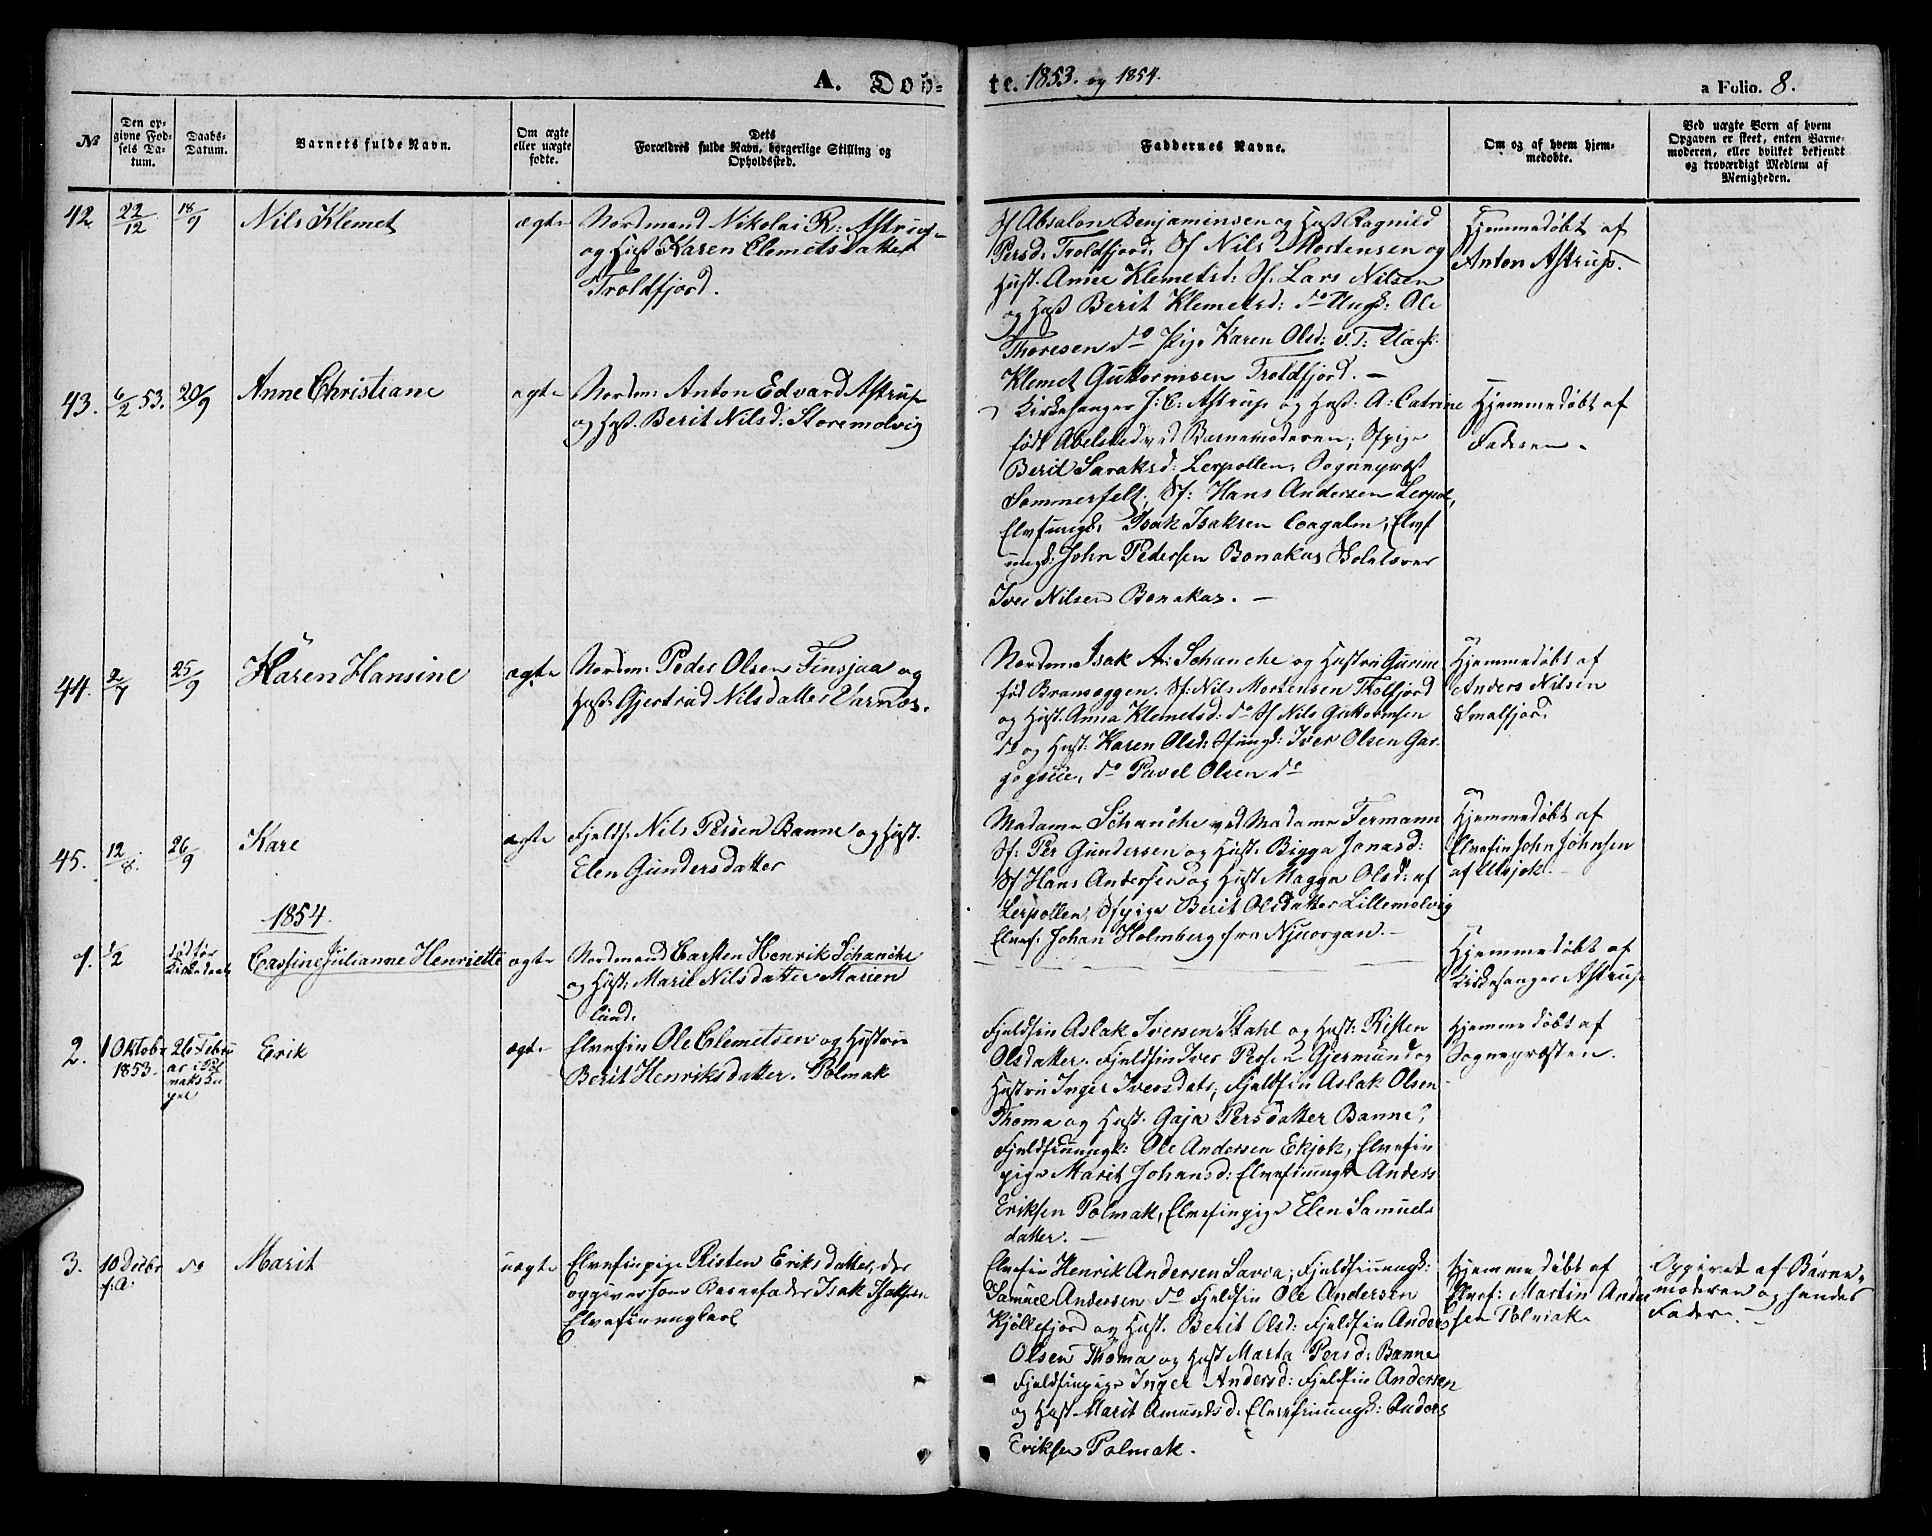 A. Døb-
te. 1853. og 1854.
a Folio. 8.
№
Den op-
givne Fød-
sels Da-
tum.
Daabs-
Datum.
Barnets fulde Navn.
Om ægte
eller uægte
fødte.
Dets
Forældres fulde Navn, borgerlige Stilling og
Opholdssted.
Faddernes Navne.
Om og af hvem hjem-
medøbte.
Ved uægte Børn af hvem
Opgaven er skeet, enten Barne-
moderen, eller hvilket bekjendt
og troværdigt Medlem af
Menigheden.
42.
22/12
18/9
Nils Klemet
ægte
Nordmand Nikolai R: Astrup
og Hust Karen Clemetsdatter
Troldfjord.
Sf Absalon Benjaminsen og Hust Ragnild
Persd: Troldfjord, Sf Nils Mortensen og
Hust. Anne Klemetsd: Sf. Lars Nilsen
og Hust Berit Klemetsd: do Ungk: Ole
Thoresen do Pige Karen Olsd: v. T: Ungk:
Klemet Guttormsen Troldfjord. –
Hjemmedøbt af
Anton Astrup.
43.
6/2 53.
20/9
Anne Christiane
ægte
Nordm: Anton Edvard Astrup
og Hust. Berit Nilsd: Storemolvig
Kirkesanger J: C: Astrup og Hust: A: Catrine
født Abelsted ved Barnemoderen, Sfpige
Berit Saraksd: Lerpollen, Sognepræst
Sommerfelt, Sf: Hans Andersen Lerpol,
Elvefungk: Isak Isaksen Coagalm, Elvf
ungk: John Pedersen Bonakas Skolelærer
Iver Nilsen Bonakas. –
Hjemmedøbt af
Faderen.
44.
2/7
25/9
Karen Hansine
ægte
Nordm: Peder Olsen Finsjaa og
Hust. Gjertrud Nilsdatter Varnæs.
Nordm: Isak A: Schanche og Hustru Gurine
fød Bransæggen. Sf: Nils Mortensen Trolfjord
og Hust. Anna Klemetsd: do Sf Nils Guttormsen
do og Hust: Karen Olsd: Sfungk: Iver Olsen Gar-
do Pavel Olsen do
Hjemmedøbt af
Anders Nilsen
Smalfjord.
45.
12/8.
26/9
Kare
ægte
Fjeldf: Nils Persen Banne og Hust.
Elen Gundersdatter
Madame Schanche ved Madame Fermann
Sf: Per Gundersen og Hust. Bigga Jonasd:
Sf Hans Andersen og Hust Magga Olsd: af
Lerpollen, Sfpige Berit Olsdatter Lillemolvig
Elvef: Johan Holmberg fra Njuorgan. –
Hjemmedøbt af
Elvefin John Johnsen
af Utsjok.
1854.
1.
1/2
død før
Kirkedaab
Cassine Julianne Henriette
ægte
Nordmand Carsten Henrik Schanche
og Hust: Marie Nilsdatter Marien
lund.
Hjemmedøbt af
Kirkesanger Astrup
2.
1 Oktobr
1853.
26 Febru
ar i Pol
maks Ka
pel
Erik
ægte
Elvefin Ole Clemetsen og Hustru
Berit Henriksdatter. Polmak
Fjeldfin Aslak Iversen Stahl og Hust: Risten
Olsdatter. Fjeldfin Iver Persen Gjermund og
Hustru Inger Iversdatr, Fjeldfin Aslak Olsen
Thoma og Hust. Gaja Persdatter Banne,
Fjeldfinungk: Ole Andersen Ekjok, Elvefin
pige Marit Johansd: Elvefinungk Anders
Eriksen Polmak, Elvefinpige Elen Samuels
datter. –
Hjemmedøbt af
Sognepræsten.
3.
10 Decbr
f. A:
do
Marit
uægte
Elvefinpige Risten Eriksdatter, der
opgiver som Barnefader Isak Isaksen
Elvefinungkarl
Elvefin Henrik Andersen Savca, Fjeldfinungk:
Samuel Andersen do Fjeldfin Ole Andersen
Kjøllefjord og Hust. Berit Olsd: Fjeldfin Anders
Olsen Thoma og Hust Marta Persd: Banne
Fjeldfinpige Inger Andersd: Fjeldfin Andersen
og Hust Marit Amundsd. Elvefinungk: Anders
Eriksen Polmak.
Hjemmedøbt af
Elvef: Martin Ander
sen Polmak
Opgivet af Barne-
moderen og hendes
Fader. –